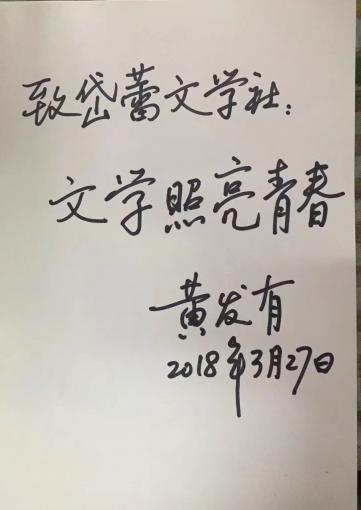 致岱蕾文学社：
文学照亮青春
黄发有
2018年3月27日